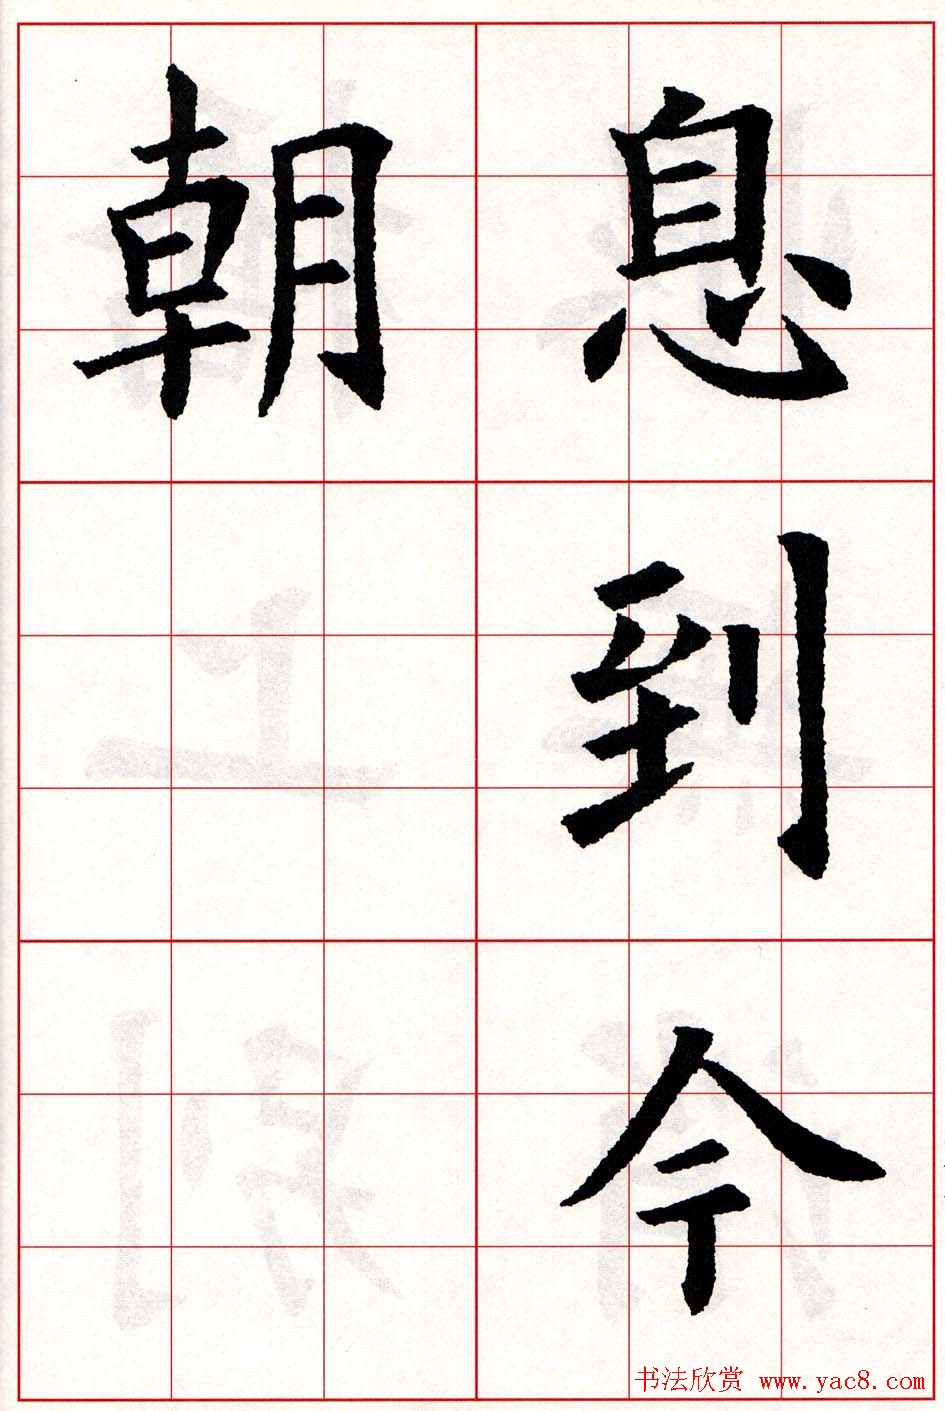 息到今
朝
书法欣赏 www.yac8.com